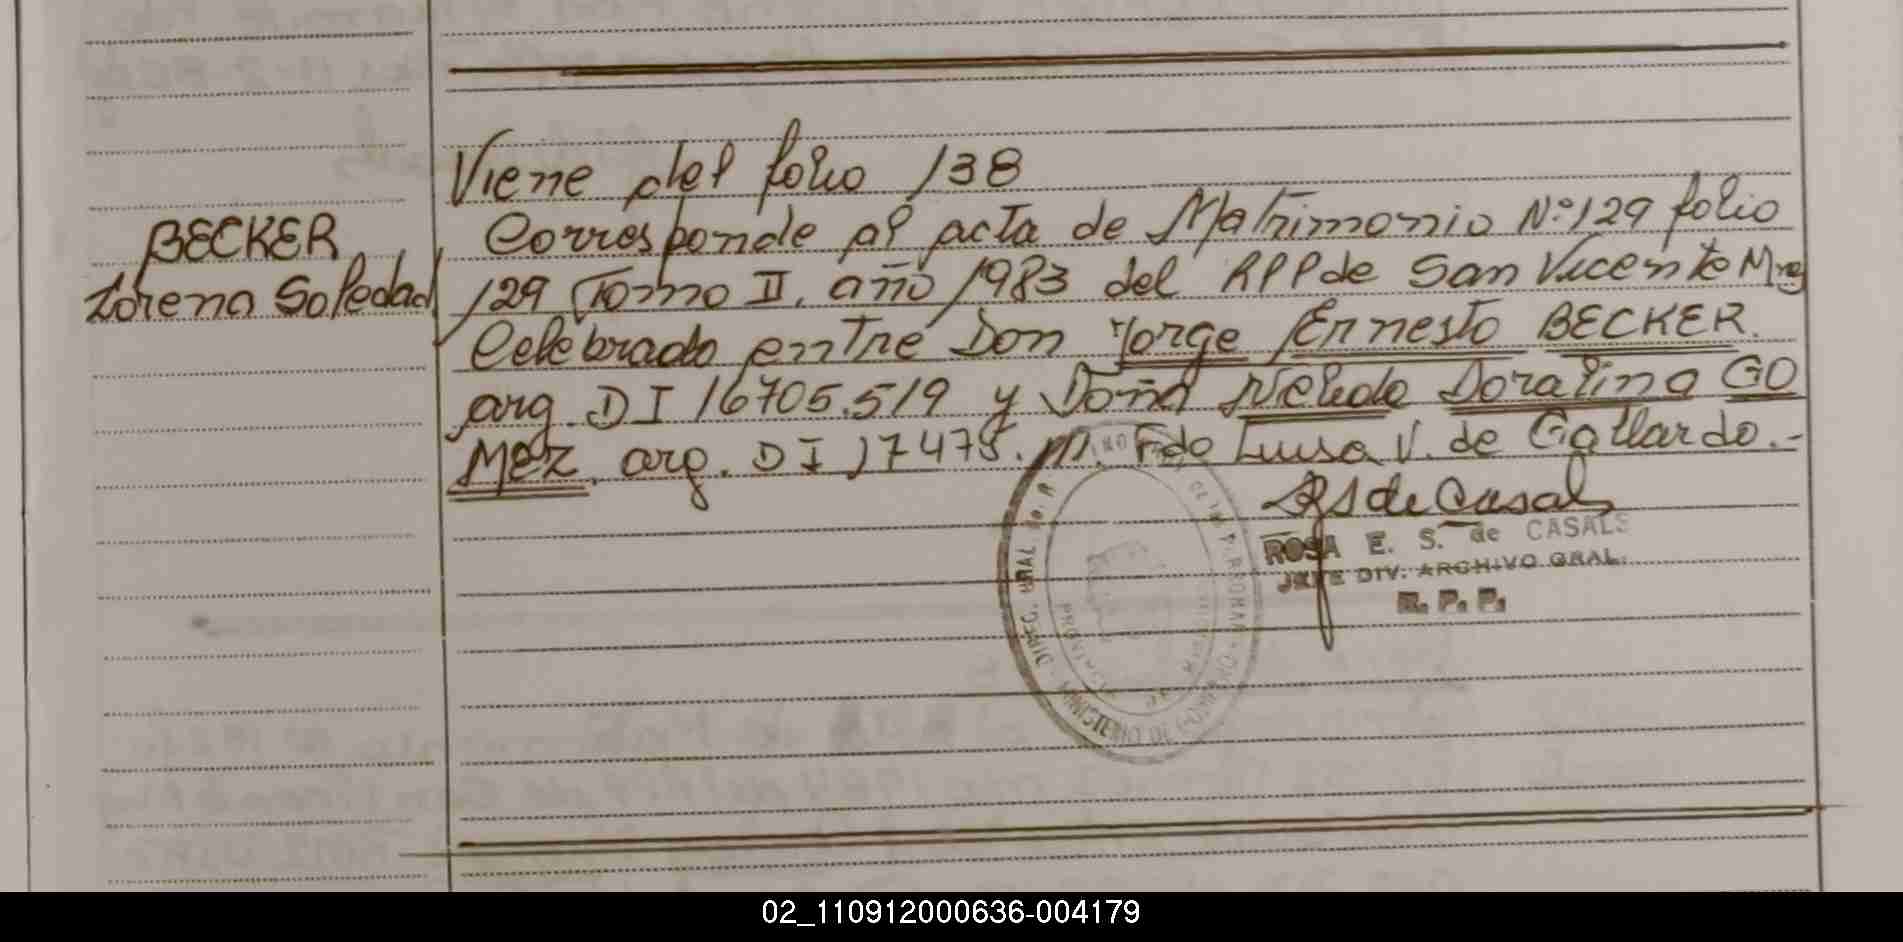 Viene del folio 138
BECKER
Lorena Soledad
Corresponde al acta de Matrimonio Nº 129 folio
129 Tomo II. año 1983 del RPP de San Vicente Mnes
Celebrado entre Don Jorge Ernesto BECKER.
arg. DI 16705.519 y Doña Nelida Doralina GO
MEZ. arg. DI 17475. Fdo Luisa V. de Gallardo.-
RS de Casals
ROSA E. S. de CASALS
JEFE DIV. ARCHIVO GRAL.
R. P. P.
DIREC. GRAL.
MINISTERIO DE GOBIERNO
02_110912000636-004179